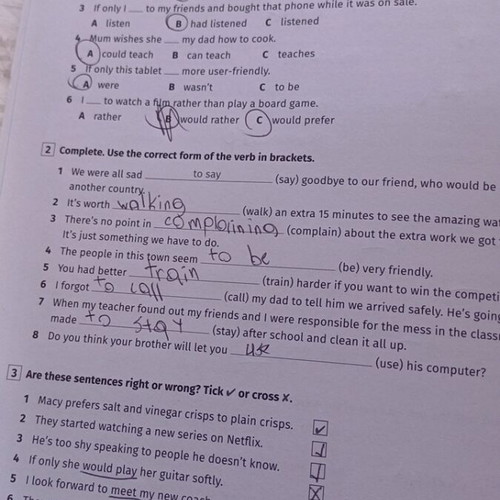 3 If only I ___ to my friends and bought that phone while it was on sale.
A listen B had listened C listened
4 Mum wishes she ___ my dad how to cook.
A could teach B can teach C teaches
5 If only this tablet ___ more user-friendly.
A were B wasn't C to be
6 I ___ to watch a film rather than play a board game.
A rather B would rather C would prefer
2 Complete. Use the correct form of the verb in brackets.
1 We were all sad to say (say) goodbye to our friend, who would be
another country.
2 It's worth walking (walk) an extra 15 minutes to see the amazing
3 There's no point in complaining (complain) about the extra work we got
It's just something we have to do.
4 The people in this town seem to be (be) very friendly.
5 You had better train (train) harder if you want to win the
6 I forgot to call (call) my dad to tell him we arrived safely. He's going
7 When my teacher found out my friends and I were responsible for the mess in the
made to stay (stay) after school and clean it all up.
8 Do you think your brother will let you use (use) his computer?
3 Are these sentences right or wrong? Tick ✓ or cross ✗.
1 Macy prefers salt and vinegar crisps to plain crisps. ✓
2 They started watching a new series on Netflix.
3 He's too shy speaking to people he doesn't know.
4 If only she would play her guitar softly.
5 I look forward to meet my new X
6